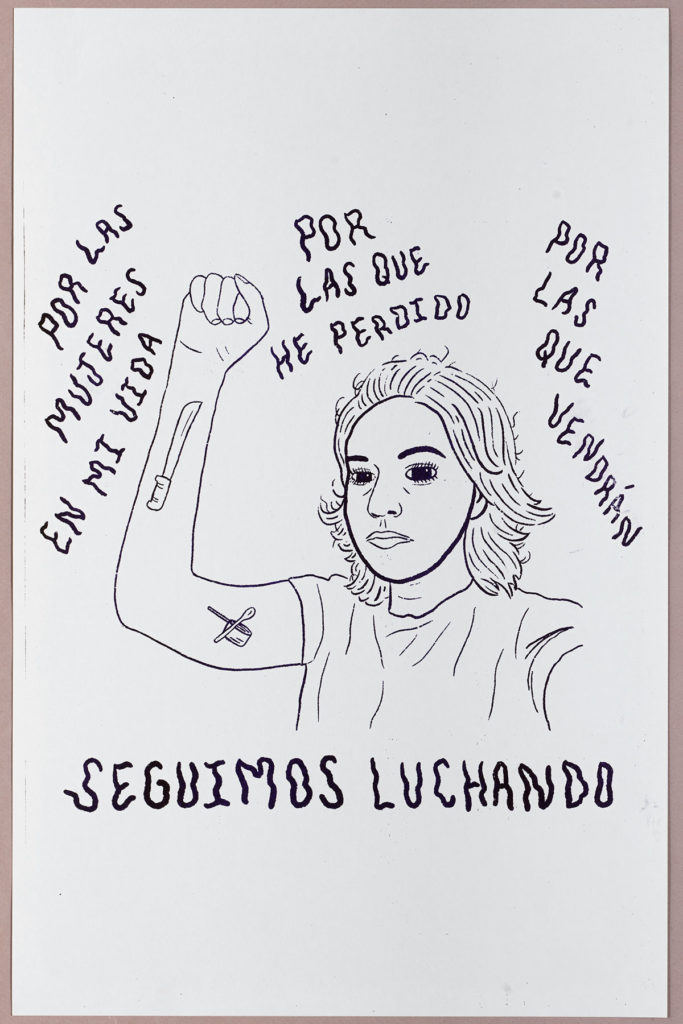 POR LAS
MUJERES
EN MI VIDA
POR
LAS QUE
HE PERDIDO
POR
LAS
QUE
VENDRÁN
SEGUIMOS LUCHANDO